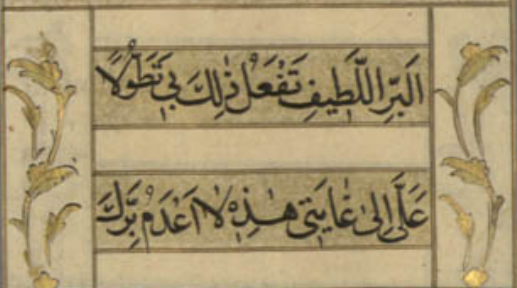 اَلبَرِّ اللَّطِيفِ تَفْعَلْ ذٰلِكَ بِي تَطَوُّلًا
عَلَيَّ اِلىٰ غٰايَتِي هٰذِهِ لٰا اَعْدَمُ بِرَّكَ